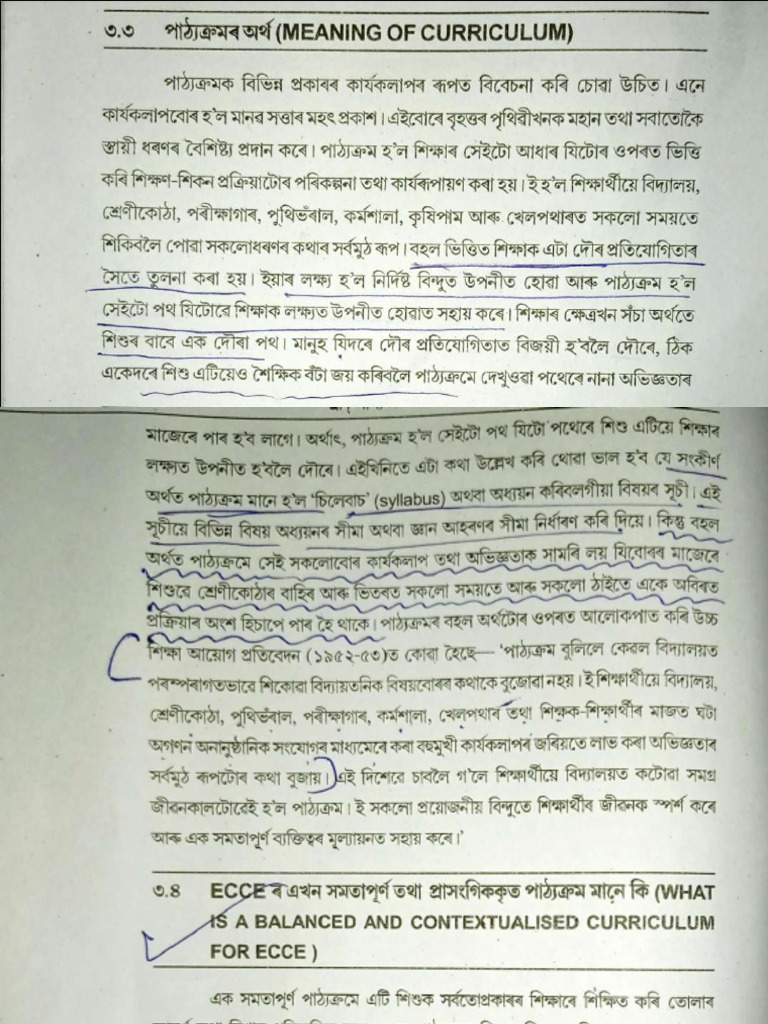 ৩.৩ পাঠ্যক্ৰমৰ অৰ্থ (MEANING OF CURRICULUM)
পাঠ্যক্ৰমক বিভিন্ন প্ৰকাৰৰ কাৰ্যকলাপৰ ৰূপত বিবেচনা কৰি চোৱা উচিত। এনে
কাৰ্যকলাপবোৰ হ'ল মানৱ সত্তাৰ মহৎ প্ৰকাশ। এইবোৰে বৃহত্তৰ পৃথিৱীখনক মহান তথা সবাতোকৈ
স্তায়ী ধৰণৰ বৈশিষ্ট্য প্ৰদান কৰে। পাঠ্যক্ৰম হ'ল শিক্ষাৰ সেইটো আধাৰ যিটোৰ ওপৰত ভিত্তি
কৰি শিক্ষণ-শিকন প্ৰক্ৰিয়াটোৰ পৰিকল্পনা তথা কাৰ্যৰূপায়ণ কৰা হয়। ই হ'ল শিক্ষাৰ্থীয়ে বিদ্যালয়,
শ্ৰেণীকোঠা, পৰীক্ষাগাৰ, পুথিভঁৰাল, কৰ্মশালা, কৃষিপাম আৰু খেলপথাৰত সকলো সময়তে
শিকিবলৈ পোৱা সকলোধৰণৰ কথাৰ সৰ্বমুঠ ৰূপ। বহল ভিত্তিত শিক্ষাক এটা দৌৰ প্ৰতিযোগিতাৰ
সৈতে তুলনা কৰা হয়। ইয়াৰ লক্ষ্য হ'ল নিৰ্দিষ্ট বিন্দুত উপনীত হোৱা আৰু পাঠ্যক্ৰম হ'ল
সেইটো পথ যিটোৱে শিক্ষাক লক্ষ্যত উপনীত হোৱাত সহায় কৰে। শিক্ষাৰ ক্ষেত্ৰখন সঁচা অৰ্থতে
শিশুৰ বাবে এক দৌৰা পথ। মানুহ যিদৰে দৌৰ প্ৰতিযোগিতাত বিজয়ী হ'বলৈ দৌৰে, ঠিক
একেদৰে শিশু এটিয়েও শৈক্ষিক বঁটা জয় কৰিবলৈ পাঠ্যক্ৰমে দেখুওৱা পথেৰে নানা অভিজ্ঞতাৰ
মাজেৰে পাৰ হ'ব লাগে। অৰ্থাৎ, পাঠ্যক্ৰম হ'ল সেইটো পথ যিটো পথেৰে শিশু এটিয়ে শিক্ষাৰ
লক্ষ্যত উপনীত হ'বলৈ দৌৰে। এইখিনিতে এটা কথা উল্লেখ কৰি থোৱা ভাল হ'ব যে সংকীৰ্ণ
অৰ্থত পাঠ্যক্ৰম মানে হ'ল 'চিলেবাচ' (syllabus) অথবা অধ্যয়ন কৰিবলগীয়া বিষয়ৰ সূচী। এই
সূচীয়ে বিভিন্ন বিষয় অধ্যয়নৰ সীমা অথবা জ্ঞান আহৰণৰ সীমা নিৰ্ধাৰণ কৰি দিয়ে। কিন্তু বহল
অৰ্থত পাঠ্যক্ৰমে সেই সকলোবোৰ কাৰ্যকলাপ তথা অভিজ্ঞতাক সামৰি লয় যিবোৰৰ মাজেৰে
শিশুৱে শ্ৰেণীকোঠাৰ বাহিৰ আৰু ভিতৰত সকলো সময়তে আৰু সকলো ঠাইতে একে অবিৰত
প্ৰক্ৰিয়াৰ অংশ হিচাপে পাৰ হৈ থাকে। পাঠ্যক্ৰমৰ বহল অৰ্থটোৰ ওপৰত আলোকপাত কৰি উচ্চ
শিক্ষা আয়োগ প্ৰতিবেদন (১৯৫২-৫৩)ত কোৱা হৈছে— 'পাঠ্যক্ৰম বুলিলে কেৱল বিদ্যালয়ত
পৰম্পৰাগতভাৱে শিকোৱা বিদ্যায়তনিক বিষয়বোৰৰ কথাকে বুজোৱা নহয়। ই শিক্ষাৰ্থীয়ে বিদ্যালয়,
শ্ৰেণীকোঠা, পুথিভঁৰাল, পৰীক্ষাগাৰ, কৰ্মশালা, খেলপথাৰ তথা শিক্ষক-শিক্ষাৰ্থীৰ মাজত ঘটা
অগণন অনানুষ্ঠানিক সংযোগৰ মাধ্যমেৰে কৰা বহুমুখী কাৰ্যকলাপৰ জৰিয়তে লাভ কৰা অভিজ্ঞতাৰ
সৰ্বমুঠ ৰূপটোৰ কথা বুজায়। এই দিশেৰে চাবলৈ গ'লে শিক্ষাৰ্থীয়ে বিদ্যালয়ত কটোৱা সমগ্ৰ
জীৱনকালটোৱেই হ'ল পাঠ্যক্ৰম। ই সকলো প্ৰয়োজনীয় বিন্দুতে শিক্ষাৰ্থীৰ জীৱনক স্পৰ্শ কৰে
আৰু এক সমতাপূৰ্ণ ব্যক্তিত্বৰ মূল্যায়নত সহায় কৰে।'
৩.৪ ECCE ৰ এখন সমতাপূৰ্ণ তথা প্ৰাসংগিককৃত পাঠ্যক্ৰম মানে কি (WHAT
IS A BALANCED AND CONTEXTUALISED CURRICULUM
FOR ECCE )
এক সমতাপূৰ্ণ পাঠ্যক্ৰমে এটি শিশুক সৰ্বতোপ্ৰকাৰৰ শিক্ষাৰে শিক্ষিত কৰি তোলাৰ